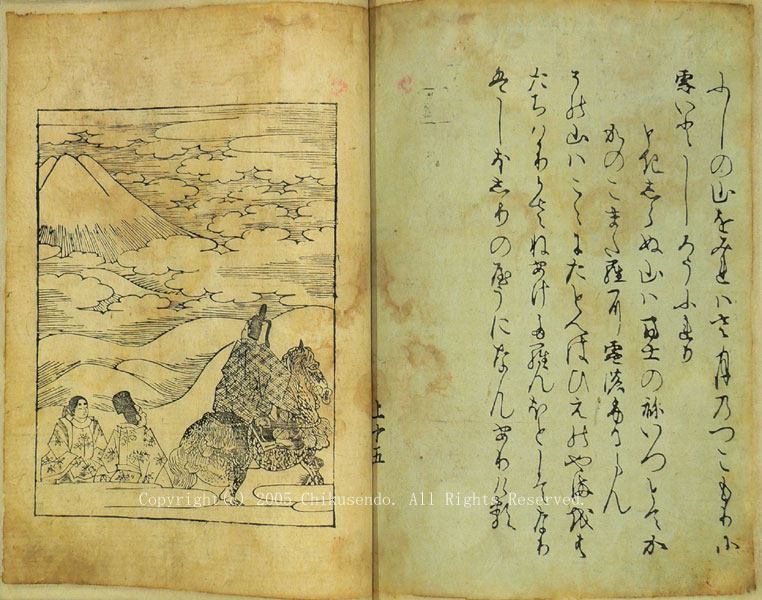 ふしの山をみれハさ月のつこもりに
雪いとしろうふれり
ときしらぬ山ハ冨士の祢いつとてか
かのこまたらに雪のふるらん
その山ハこゝにたとへはひえのやまをは
たちハかりかさねあけたらんほとしてなり
はしほしりのやうになんありける
上十五
Copyright(c) 2005 Chikusendo. All Rights Reserved.